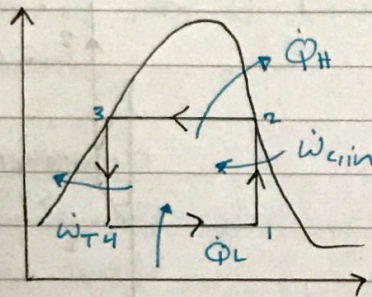 Q̇H
3 2
Ẇc,in
ẆT 4 Q̇L 1